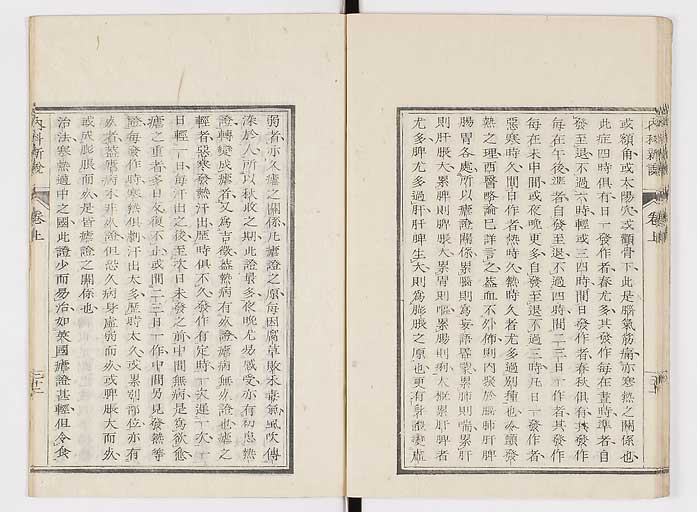 或額角或太陽穴或顴骨下此是腦氣筋痛亦寒熱之關係也
此症四時俱有日一發作者春尤多其發作每在晝時準者自
發至退不過六時輕或三四時間日發作者春秋俱有其發作
每在午後準者自發至退不過四時間二三日一作者其發作
每在未申間或夜晚更多自發至退不過三時凡日一發作者
惡寒時久間日作者熱時久熱時久者尤多過別種也令顫發
熱之理西醫略論已詳言之蓋血不外佈則內聚於腦肺肝脾
腸胃各處所以瘧證關係累腦則爲妄語昏蒙累肺則喘累肝
則肝脹大累脾則脾脹大累胃則嘔累腸則痢大概累肝脾者
尤多脾尤多過肝肝脾生大則爲膨脹之原也更有身體變虛
弱者亦久瘧之關係凡瘧證之原每因腐草敗木毒氣風吹傳
染於人所以秋收之期此證最多夜晚尤易感受亦有初患熱
證轉變成瘧者又爲言徵蓋熱病有死證瘧病無死證也瘧之
輕者惡寒發熱汗出歷時俱不久發作有定時一次遲一次一
日輕一日每汗出之後至次日未發之前中間無病是爲欲愈
瘧之重者多日反復不止或間二三日一作中間另見發熱等
證每發作時寒熱俱劇汗出太多歷時太久或累別部位亦有
死者蓋瘧病本非死證但患久病身虛弱而死或脾脹大而死
或成膨脹而死是皆瘧證之關係也
治法寒熱適中之國此證少而易治如英國瘧證甚輕但令食
內科新說
卷上
二十二